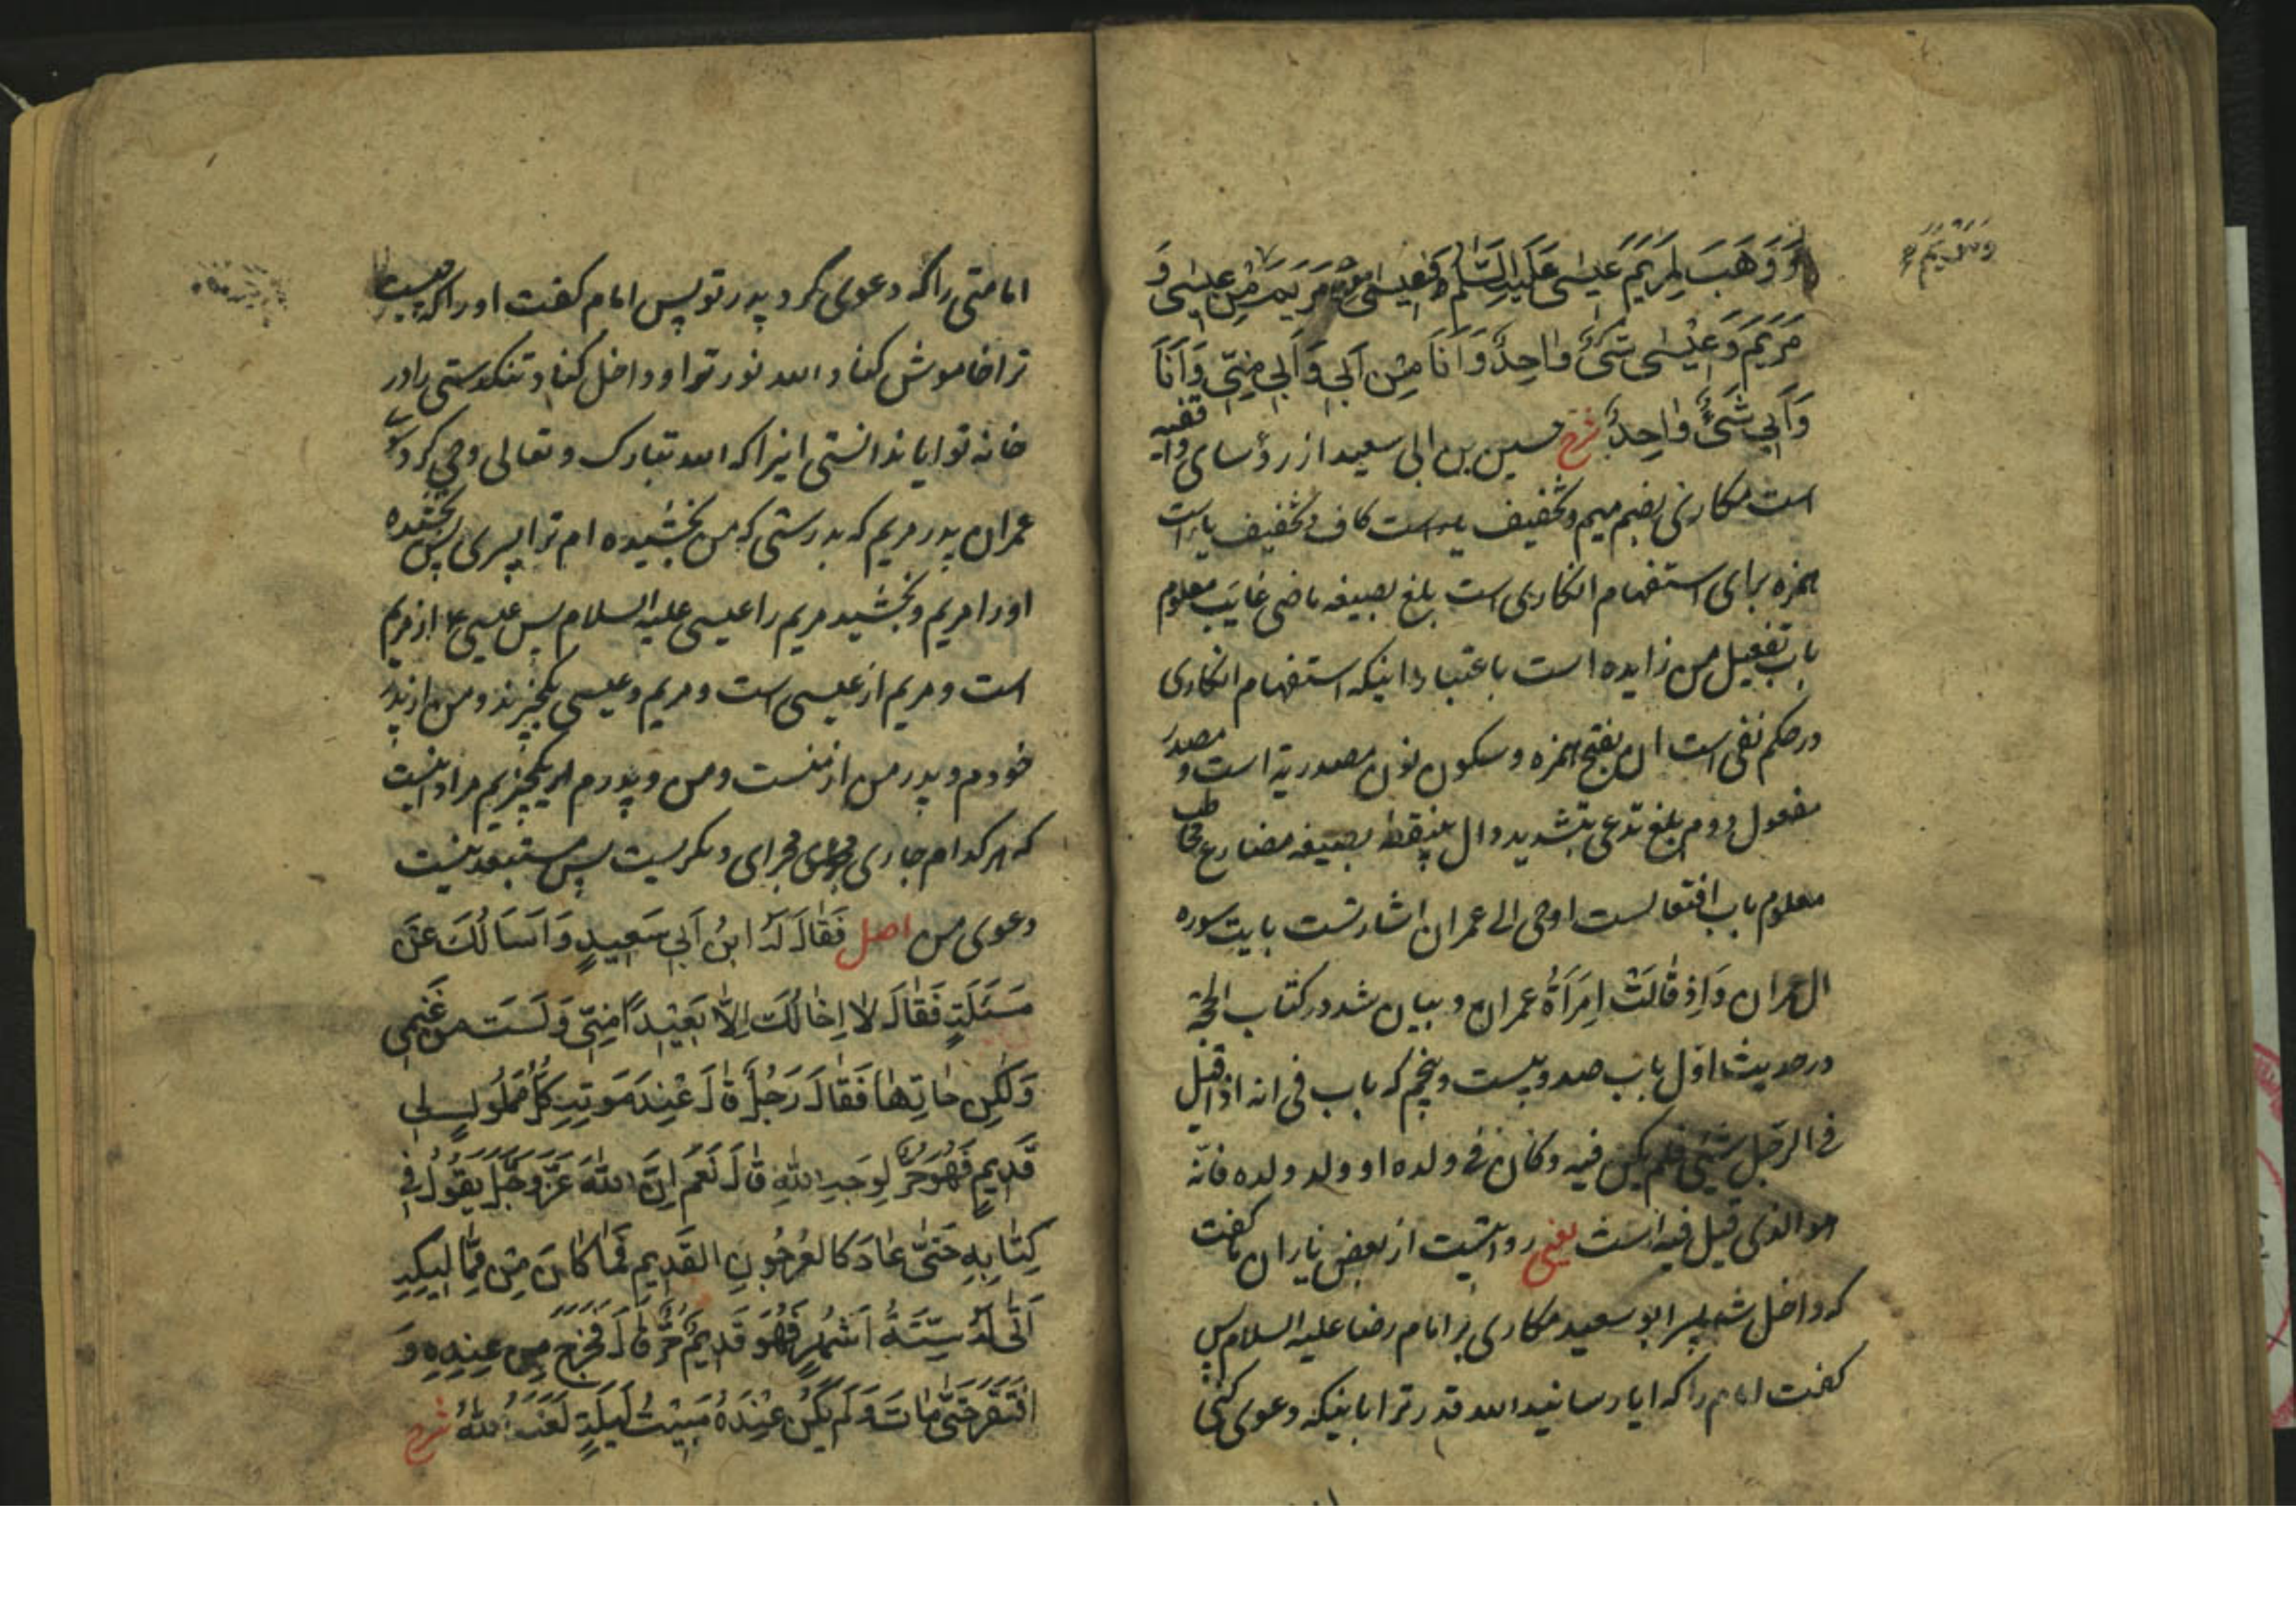 وَوَهَبَ لِمَرْيَمَ عِيسٰى عَلَيْهِ السَّلٰمُ فَعِيسٰى مِنْ مَرْيَمَ مِنْ عِيسٰى وَ
مَرْيَمُ وَعِيْسٰى شَىْءٌ وٰاحِدٌ وَاَنَا مِنْ اَبِى وَاَبِى مِنِّى وَاَنَا
وَاَبِى شَىْءٌ وٰاحِدٌ شرح حسین بن ابی سعید از رؤسای واقفیه
است مکاری بضم میم و تخفیف کاف و تخفیف یاء است
همزه برای استفهام انکاری است بلغ بصیغه ماضی غایب معلوم
باب تفعیل من زایده است باعتبار اینکه استفهام انکاری
در حکم نفی است ان بفتح همزه و سکون نون مصدریة است و مصدر
مفعول دوم بلغ تدعی بتشدید دال بینقطه بصیغه مضارع مخاطب
معلوم باب افتعالست اوحی الی عمران اشارتست بایت سوره
ال عمران وَاِذ قٰالَتْ اِمْرَاَةُ عمران و بیان شد در کتاب الحجة
در حدیث اول باب صد و بیست و پنجم که باب فی انه اذا قیل
فی الرجل شیئ فلم یکن فیه وکان فی ولده او ولد ولده فانه
هو الذی قیل فیه است یعنی روایتست از بعض یاران ما گفت
که داخل شد پسر ابو سعید مکاری بر امام رضا علیه السلام پس
گفت امام را که ایا رسانید الله قدر ترا باینکه دعوی کنی
امامتی را که دعوی کرد پدر تو پس امام گفت او را که چیست
ترا خاموش کناد الله نور ترا و داخل کناد تنکدستی را در
خانه تو ایا ندانستی اینرا که الله تبارک و تعالی وحی کرد بسوی
عمران پدر مریم که بدرستی که من بخشیده ام ترا پسری پس بخشیده
او را مریم و بخشید مریم را عیسی علیه السلام پس عیسی ع از مریم
است و مریم از عیسی است و مریم و عیسی یکچیزند و من از پدر
خودم و پدر من از منست و من و پدرم یکچیزیم مراد اینست
که هر کدام جاری مجرای دیکریست پس مستبعد نیست
دعوی من اصل فَقٰالَ لَهُ ابْنُ اَبِى سَعِيدٍ وَاَسَالُكَ عَنْ
مَسْئَلَةٍ فَقٰالَ لاٰ اِخٰالُكَ اِلاّٰ بَعِيْدًا مِنِّى وَلَسْتَ مِنْ غَنَمِى
وَلٰكِنْ هٰاتِهٰا فَقٰالَ رَجُلٌ قٰالَ عِنْدَ مَوتِهِ كُلُّ مَمْلُوكٍ لِى
قَدِيمٍ فَهُوَ حُرٌّ لِوَجْهِ اللّٰهِ قٰالَ نَعَمْ اِنَّ اللّٰهَ عَزَّ وَجَلَّ يَقُولُ فِى
كِتٰابِهِ حَتّٰى عٰادَ كَالعُرْجُونِ القَدِيمِ فَمٰا كٰانَ مِنْ مَمٰالِيكِهِ
اَتٰى لَهُ سِتَّةُ اَشْهُرٍ فَهُوَ قَدِيمٌ حُرٌّ قٰالَ فَخَرَجَ مِن عِنْدِهِ وَ
افْتَقَرَ حَتّٰى مٰاتَ وَلَم يَكُنْ عِنْدَهُ مَبِيْتُ لَيْلَةٍ لَعَنَهُ اللّٰهُ شرح